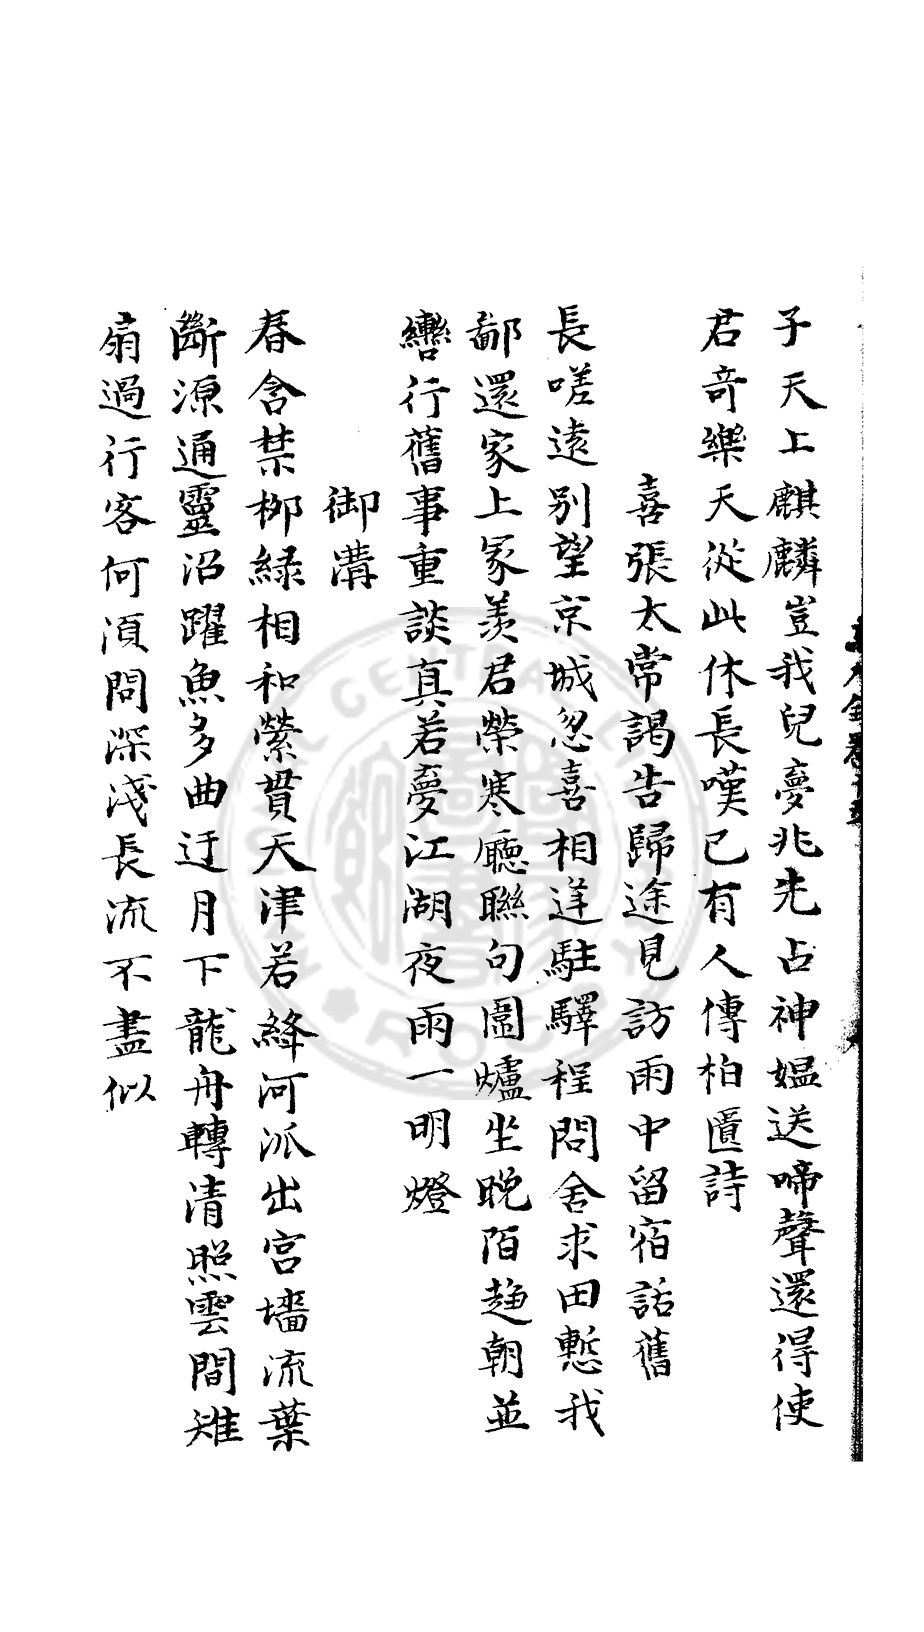 子天上麒麟豈我兒夢兆先占神媪送啼聲還得使
君奇樂天從此休長嘆已有人傳柏匱詩
喜張太常謁告歸途見訪雨中留宿話舊
長嗟遠別望京城忽喜相逢駐驛程問舍求田慙我
鄙還家上冢羡君榮寒廳聯句圍爐坐晚陌趨朝並
轡行舊事重談真若夢江湖夜雨一明燈
御溝
春含禁柳綠相和縈貫天津若絳河派出宮墻流葉
斷源通靈沼躍魚多曲迂月下龍舟轉清照雲間雉
扇過行客何須問深淺長流不盡似